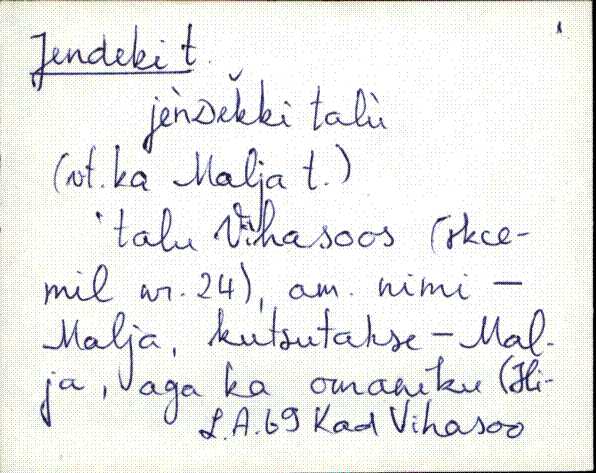 Jendeki t.
jènDĕkki talù
(vt. ka Malja t.)
'talu Vihasoos (skee-
mil nr. 24), am. nimi –
Malja, kutsutakse – Mal-
ja, aga ka omaniku (Hi-
L.A. 69 Kad Vihasoo